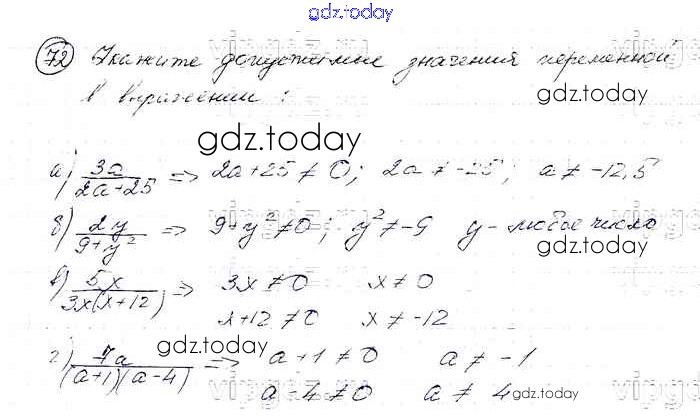 gdz.today
72 Укажите допустимые значения переменной
в выражении :
gdz.today
gdz.today
а) 3a/(2a+25) => 2a+25 ≠ 0; 2a ≠ -25; a ≠ -12,5
б) 2y/(9+y²) => 9+y² ≠ 0; y² ≠ -9 y - любое число
gdz.today
gdz.today
в) 5x/(3x(x+12)) => 3x ≠ 0 x ≠ 0
x+12 ≠ 0 x ≠ -12
gdz.today
г) 7a/((a+1)(a-4)) => a+1 ≠ 0 a ≠ -1
a-4 ≠ 0 a ≠ 4
gdz.today